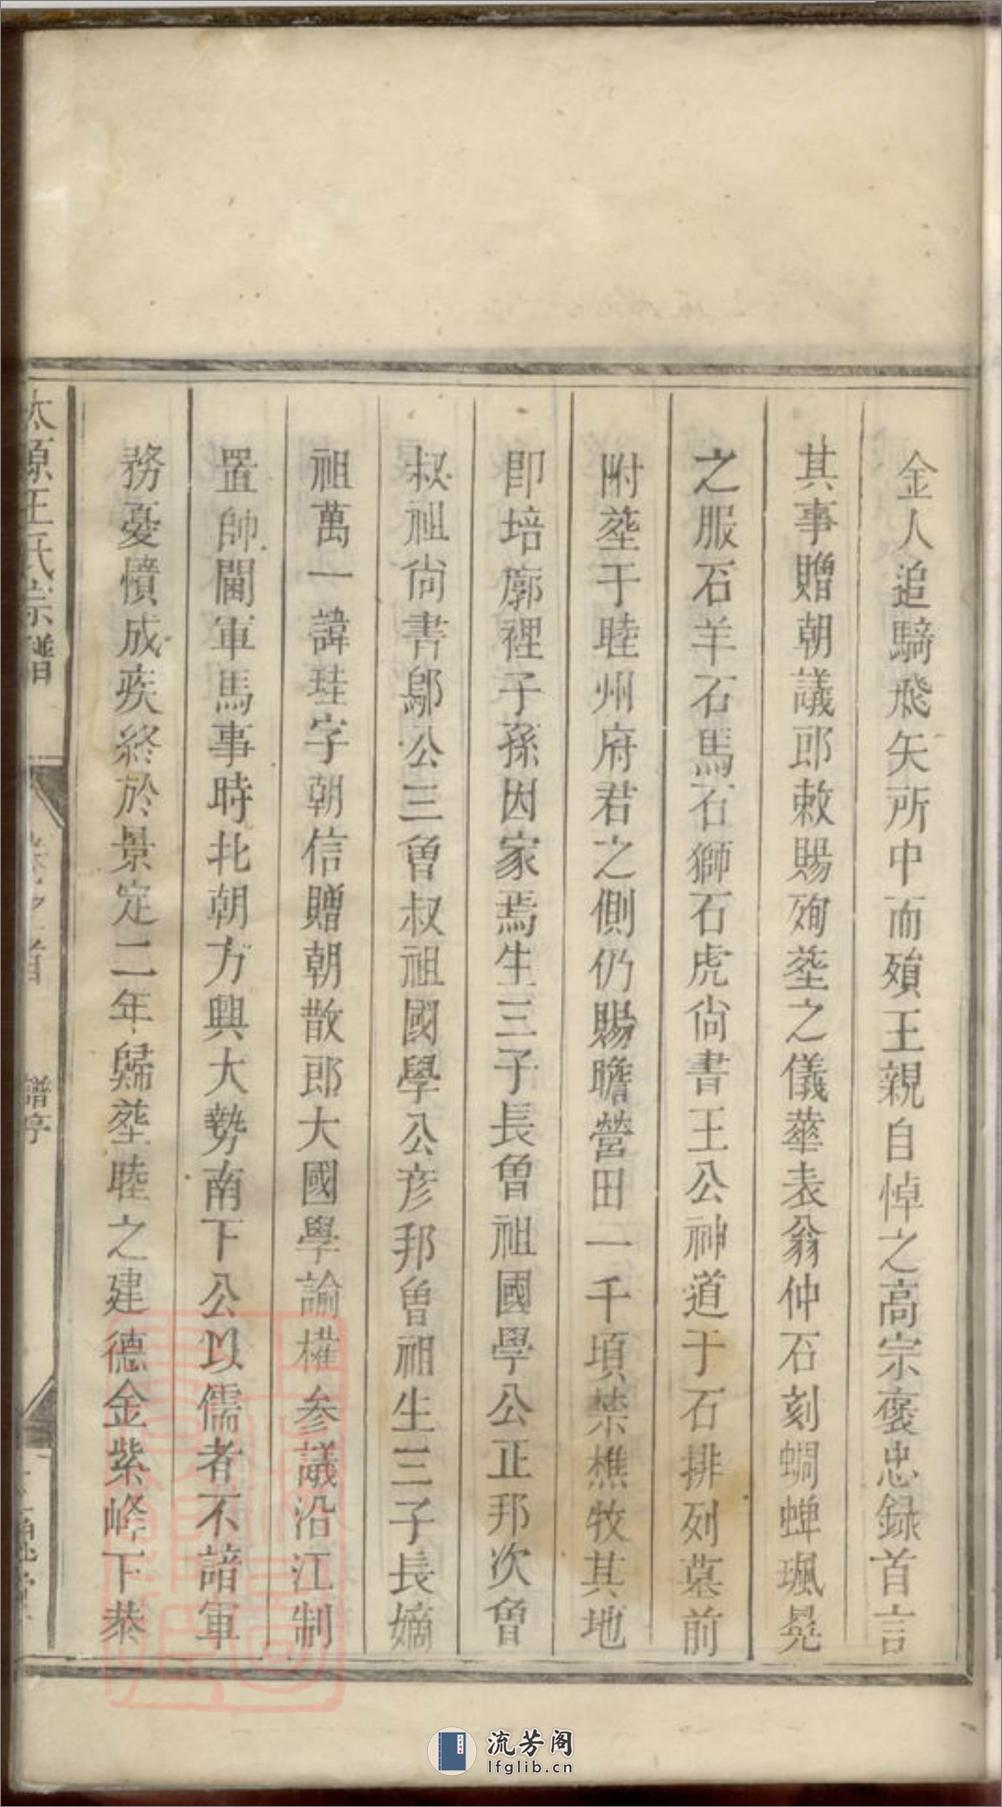 金人追騎飛矢所中而殞王親自悼之高宗褒忠録首言
其事贈朝議郎敕賜殉塟之儀華表翁仲石刻蜩蟬珮晃
之服石羊石馬石獅石虎尙書王公神道于石排列墓前
附塟于睦州府君之側仍賜瞻營田一千頃禁樵牧其地
卽培廓裡子孫因家焉生三子長曾祖國學公正邦次曾
叔祖尙書鄔公三曾叔祖國學公彦邦曾祖生三子長嫡
祖萬一諱珪字朝信贈朝散郎大國學諭權參議沿江制
置帥閫軍馬事時北朝方興大勢南下公以儒者不諳軍
務憂憒成疾終於景定二年歸塟睦之建德金紫峰下恭
太原王氏宗譜
卷之首
譜序
流芳阁
lfglib.cn